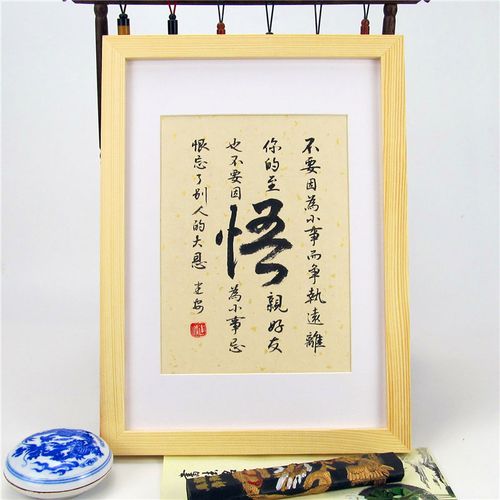 不要因為小事而争執遠離
你的至親好友
也不要因為小事忌
恨忘了別人的大恩
悟